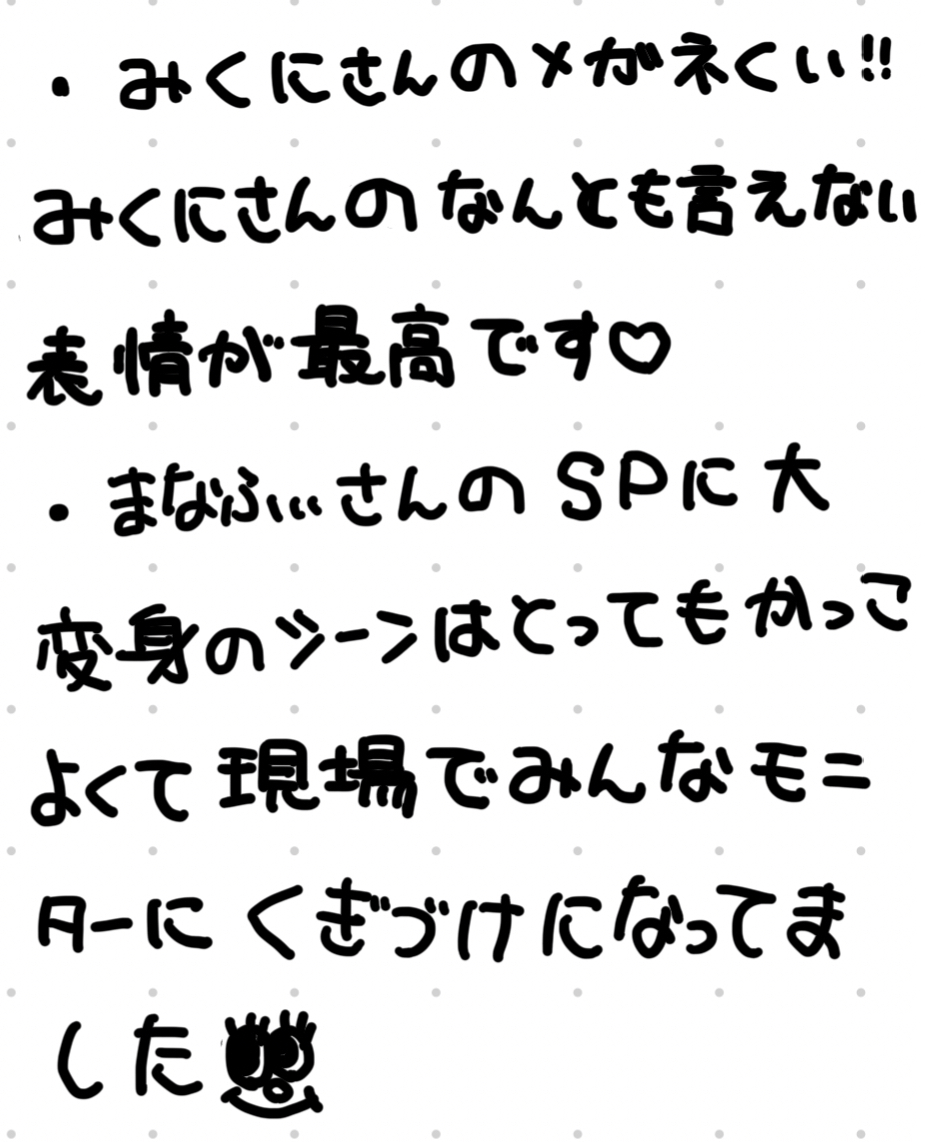 ・みくにさんのメガネくい!!
みくにさんのなんとも言えない
表情が最高です♡
・まなふぃさんのSPに大
変身のシーンはとってもかっこ
よくて現場でみんなモニ
ターにくぎづけになってま
した